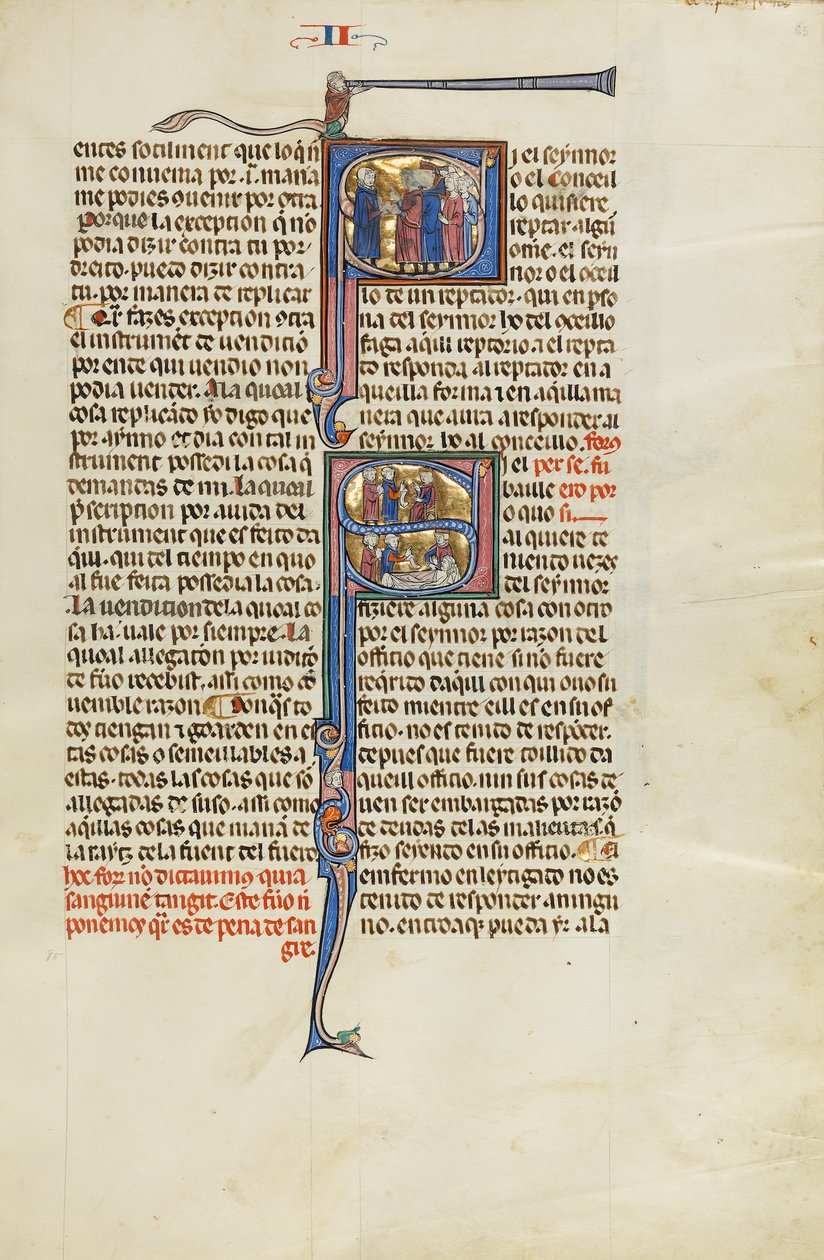 II
85
entes sotilment que lo q̄ nō
me conuenia por .i.ᵃ mana
me podies ꝯuenir por otra
porque la exception q̄ no
podia dizir contra tu por
dreito. puedo dizir contra
tu. por manera de replicar
Qr̄ fazes exception ꝯtra
el instrumēt de uenditiō
por ende qui uendio non
podia uender. A la quoal
cosa replicādo yo digo que
por aynno et dia con tal in
strument possedi la cosa q̄
demandas de mi. La quoal
p̄scription por auida del
instrument que es feito da
qui. qui del tiempo en quo
al fue feita possedia la cosa.
La uendition de la quoal co
sa ha uale por siempre. La
quoal allegation por iuditio
de fuero recebist. assi como co
uenible razon Donq̄s to
dos tiengan ⁊ goarden en es
tas cosas o semeillables a
estas. todas las cosas que sō
allegadas de suso. assi como
aq̄illas cosas que manā de
la rayz de la fuent del fuero
hoc for nō dictauimus quia
sanguinē tangit. Este fuero nō
ponemos qr̄ es de pena de san
gre.
i el seynnor
o el Conceil
lo quisiere
reptar algū
ome. el seyn
nor o el ꝯceil
lo de un reptador. qui en pso
na del seynnor ho del ꝯceillo
faga aq̄ui reptorio a el repta
do responda al reptador en a
queilla forma ⁊ en aq̄illa ma
nera que aura a responder al
seynnor ho al concello. forꝰ
i el per se. fu
baille ero por
o quo si.
al quiere te
niendo uezes
del seynnor
fiziere alguna cosa con otro
por el seynnor por razon del
officio que tiene si no fuere
req̄rido daqui con qui ouo su
feito mientre eill es en su of
ficio. no es tenido de respōder.
depues que fuere toillido da
queill officio. nin sus cosas de
uen ser embargadas por razō
de deudas de las malieutas. q̄
fizo seyendo en su officio. El
enfermo en leytigado no es
tenido de responder a ningu
no. entroa q̄ pueda yr a la